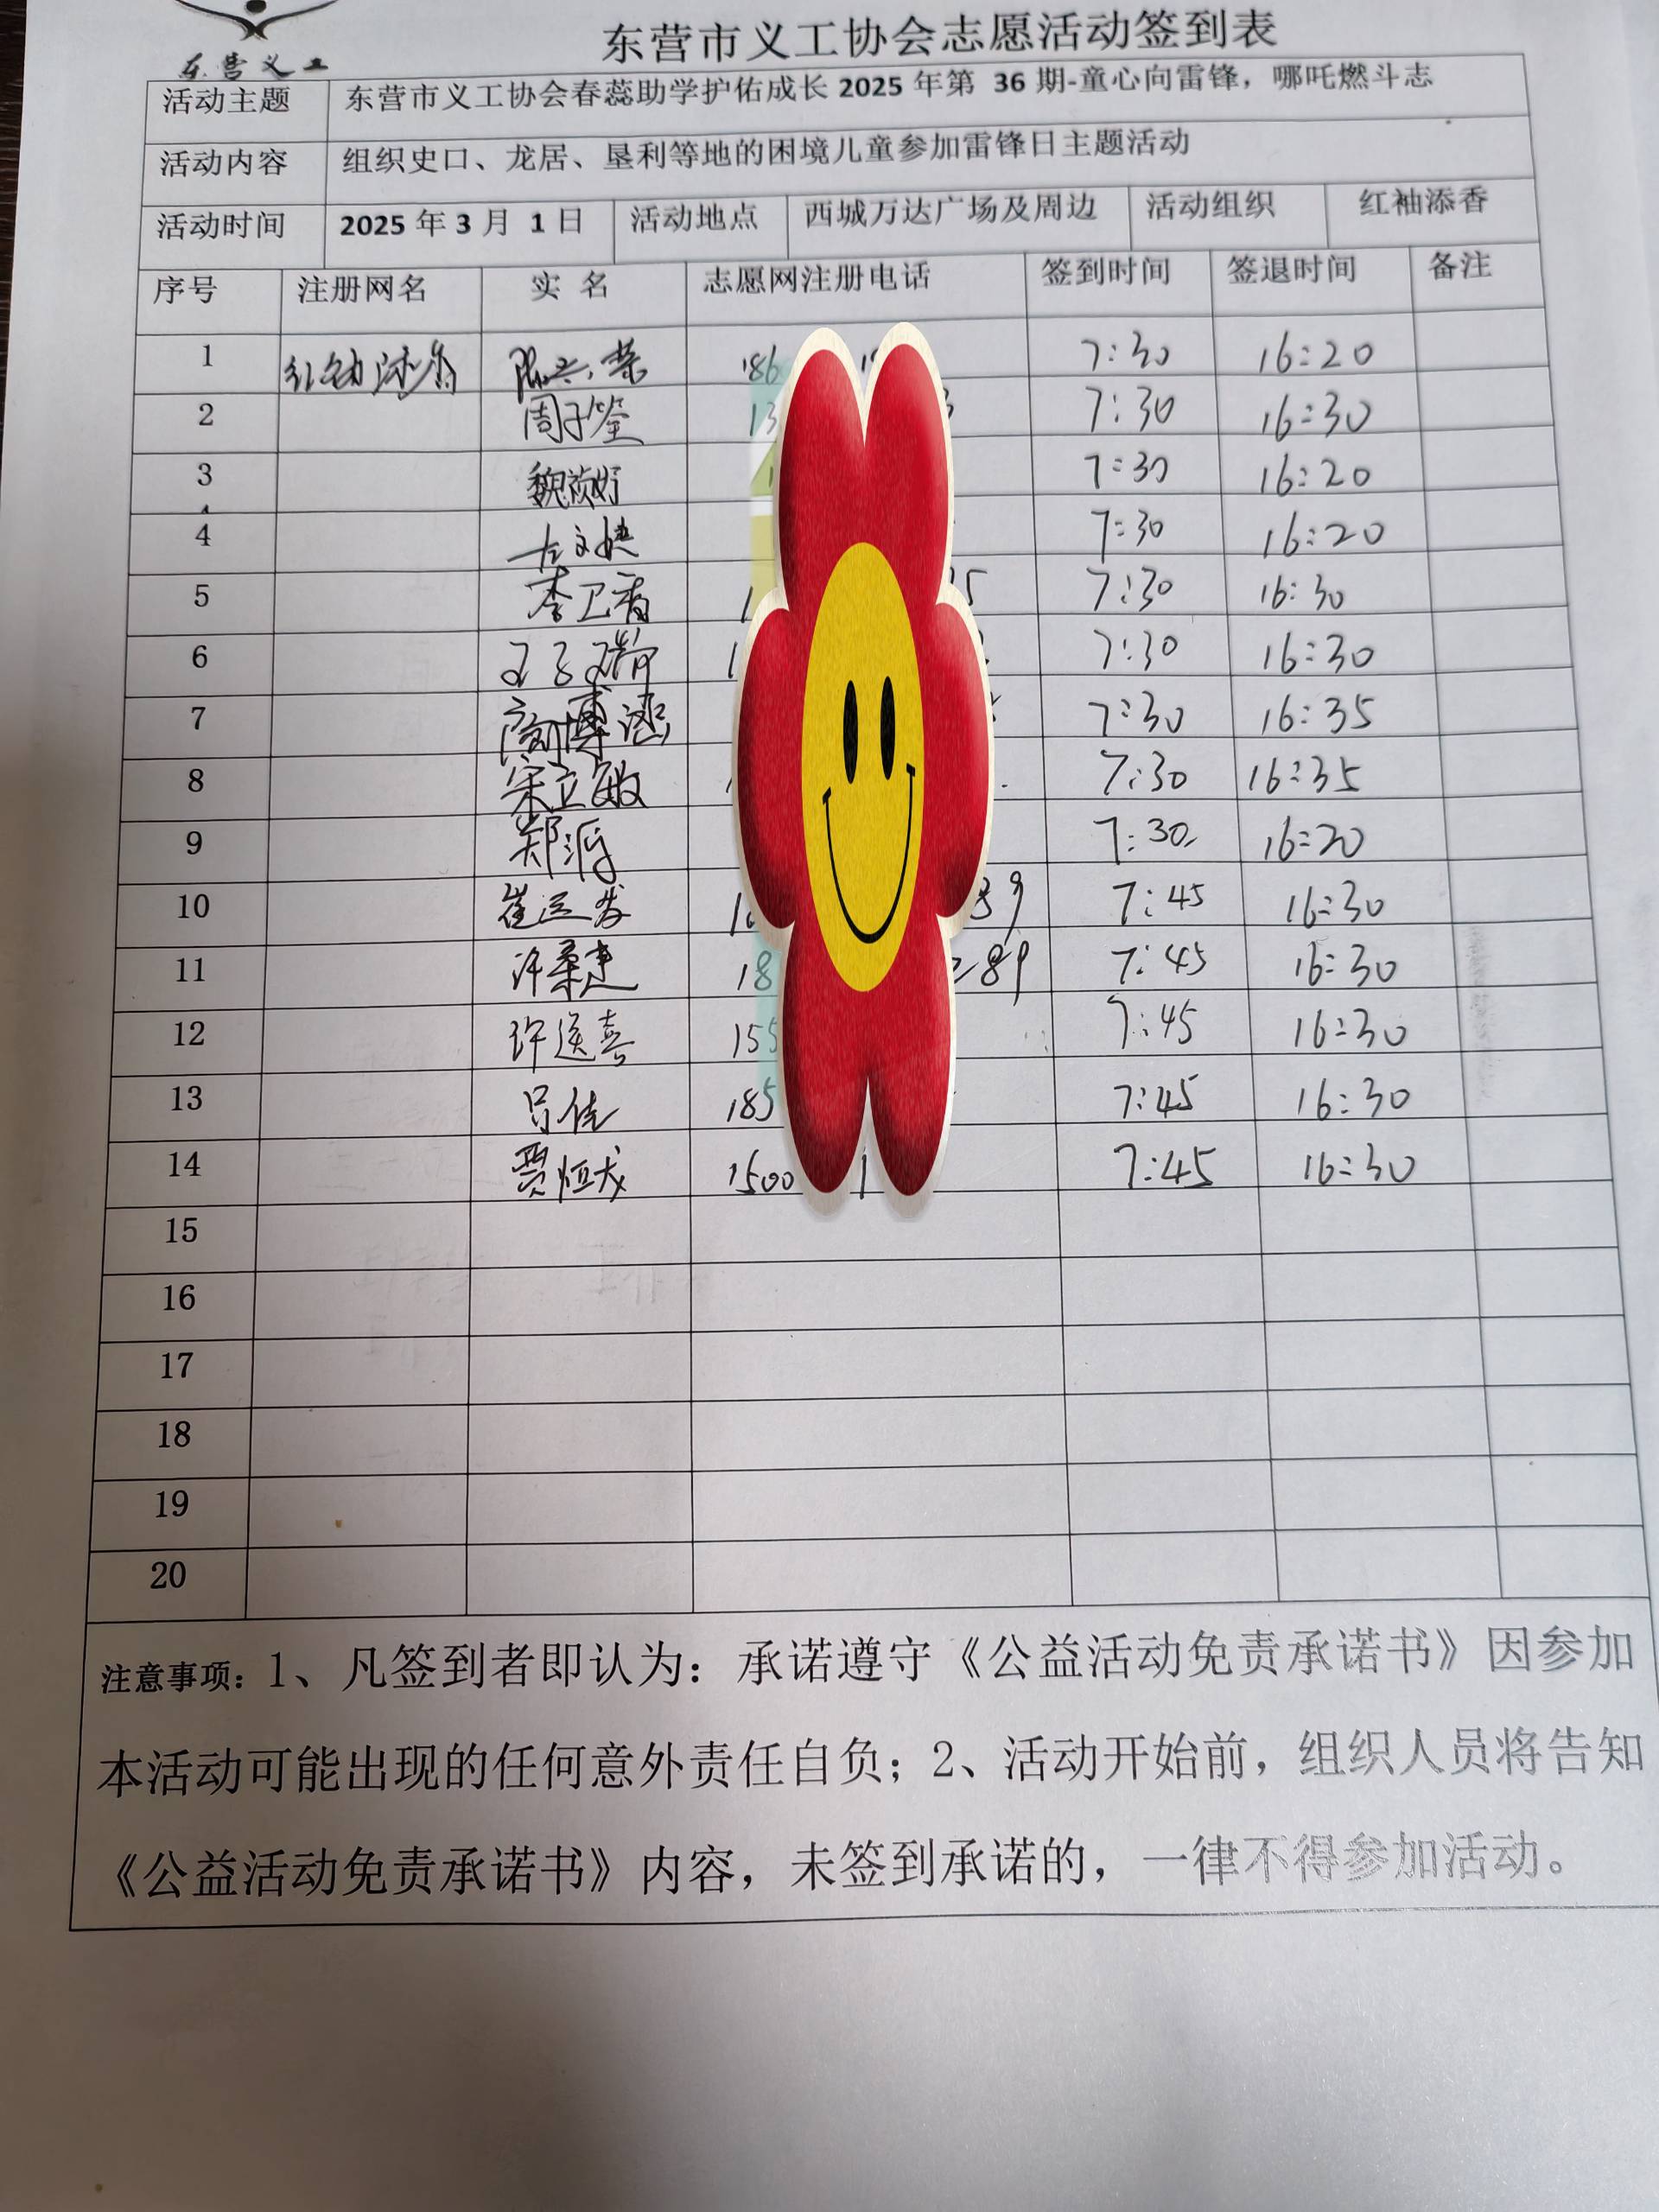 东营义工
东营市义工协会志愿活动签到表
活动主题 东营市义工协会春蕊助学护佑成长 2025 年第 36 期-童心向雷锋，哪吒燃斗志
活动内容 组织史口、龙居、垦利等地的困境儿童参加雷锋日主题活动
活动时间 2025 年 3 月 1 日 活动地点 西城万达广场及周边 活动组织 红袖添香
序号 注册网名 实 名 志愿网注册电话 签到时间 签退时间 备注
1 红袖添香 陈兴荣 186 7:30 16:20
2 周子筌 13 7:30 16:30
3 魏祯妤 7:30 16:20
4 左文婕 7:30 16:20
5 李卫香 1 5 7:30 16:30
6 王子 1 7:30 16:30
7 商博涵 7:30 16:35
8 宋立敏 7:30 16:35
9 郑派 7:30 16:20
10 崔运发 39 7:45 16:30
11 许秉建 18 289 7:45 16:30
12 许送喜 155 7:45 16:30
13 吕佳 185 7:45 16:30
14 贾恒龙 1500 1 7:45 16:30
15
16
17
18
19
20
注意事项：1、凡签到者即认为：承诺遵守《公益活动免责承诺书》因参加
本活动可能出现的任何意外责任自负；2、活动开始前，组织人员将告知
《公益活动免责承诺书》内容，未签到承诺的，一律不得参加活动。